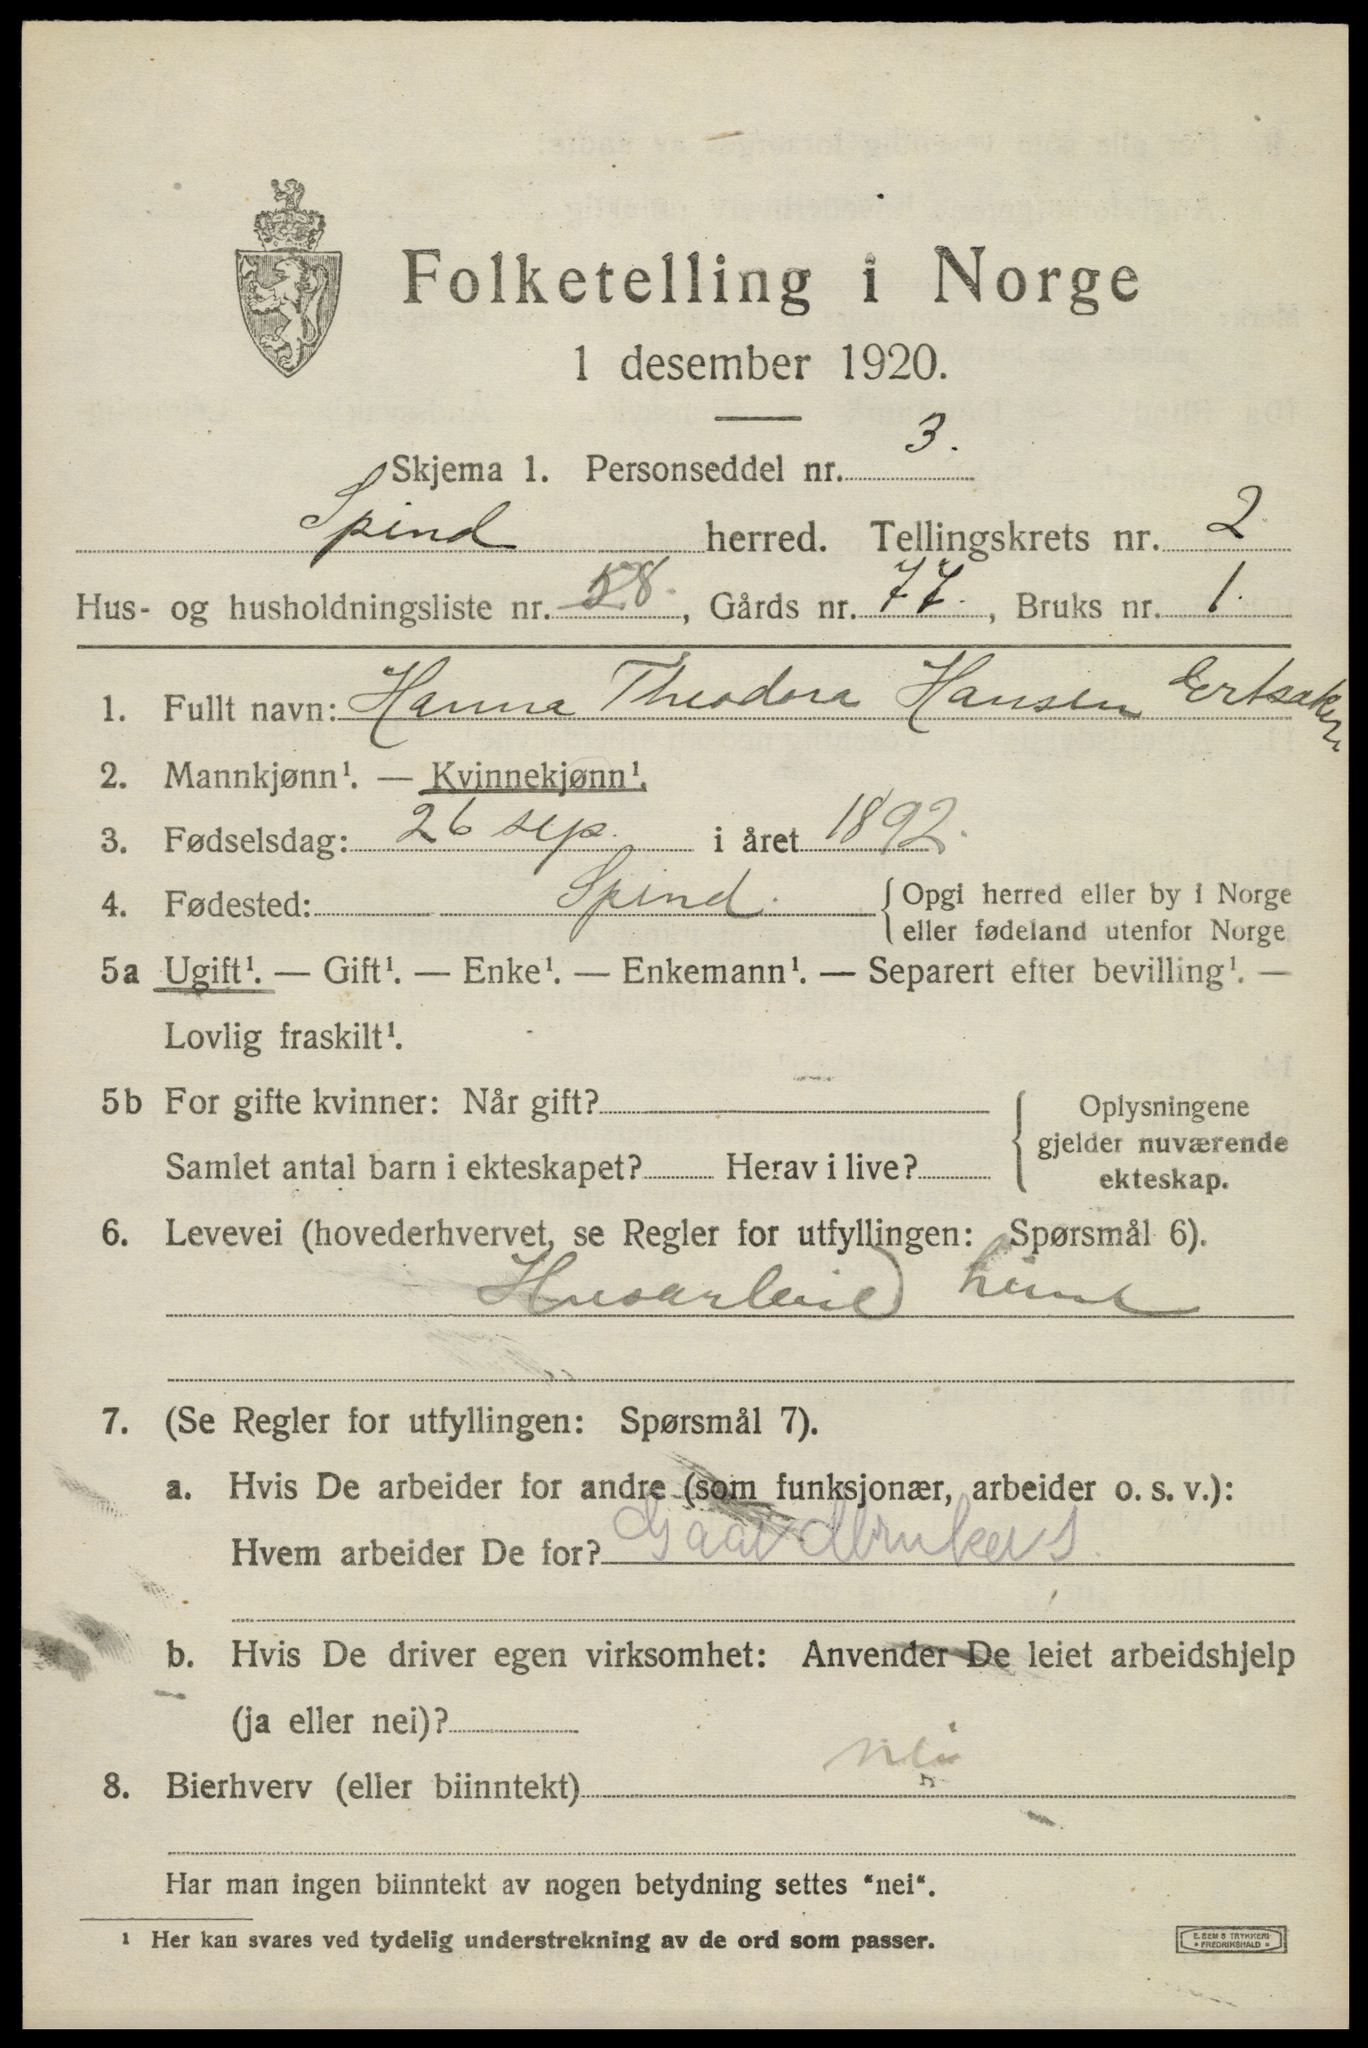 Folketelling i Norge
1 desember 1920.
Skjema 1. Personseddel nr. 3.
Spind herred. Tellingskrets nr. 2
Hus- og husholdningsliste nr. 58., Gårds nr. 77., Bruks nr. 1.
1. Fullt navn: Hanna Theodora Hansen Ertsaker
2. Mannkjønn¹. — Kvinnekjønn¹.
3. Fødselsdag: 26 sep. i året 1892.
4. Fødested: Spind. Opgi herred eller by i Norge
eller fødeland utenfor Norge
5a Ugift¹. — Gift¹. — Enke¹. — Enkemann¹. — Separert efter bevilling¹. —
Lovlig fraskilt¹.
5b For gifte kvinner: Når gift?
Samlet antal barn i ekteskapet? Herav i live?
Oplysningene
gjelder nuværende
ekteskap.
6. Levevei (hovederhvervet, se Regler for utfyllingen: Spørsmål 6).
Husarbeid
7. (Se Regler for utfyllingen: Spørsmål 7).
a. Hvis De arbeider for andre (som funksjonær, arbeider o. s. v.):
Hvem arbeider De for? Gaardbruker S.
b. Hvis De driver egen virksomhet: Anvender De leiet arbeidshjelp
(ja eller nei)?
8. Bierhverv (eller biinntekt) nei
Har man ingen biinntekt av nogen betydning settes "nei".
¹ Her kan svares ved tydelig understrekning av de ord som passer.
E. SEM S TRYKKERI
* FREDRIKSHALD *